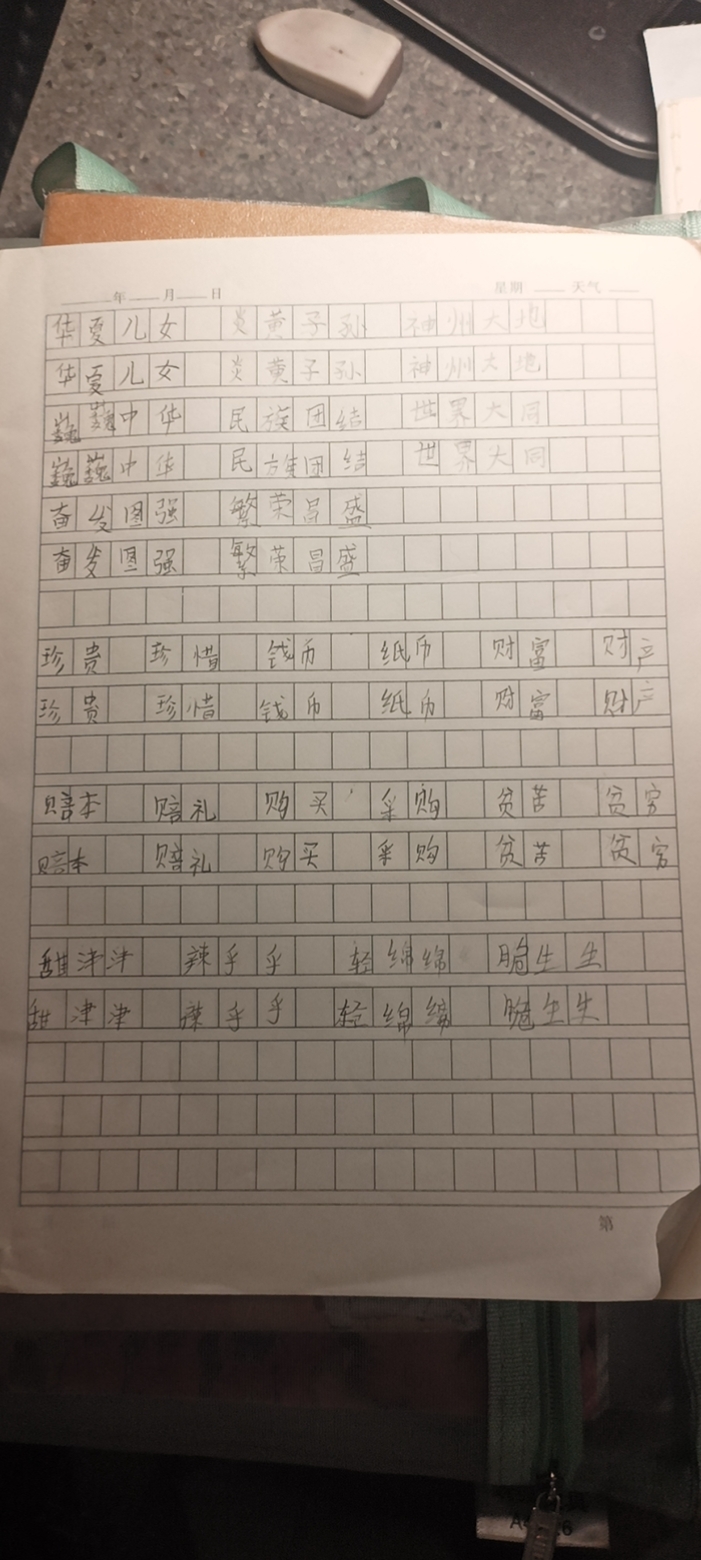 年 月 日 星期 天气
华夏儿女 炎黄子孙 神州大地
华夏儿女 炎黄子孙 神州大地
巍巍中华 民族团结 世界大同
巍巍中华 民族团结 世界大同
奋发图强 繁荣昌盛
奋发图强 繁荣昌盛
珍贵 珍惜 钱币 纸币 财富 财产
珍贵 珍惜 钱币 纸币 财富 财产
赔本 赔礼 购买 采购 贫苦 贫穷
赔本 赔礼 购买 采购 贫苦 贫穷
甜津津 辣乎乎 轻绵绵 生生
甜津津 辣乎乎 轻绵绵 生生
第